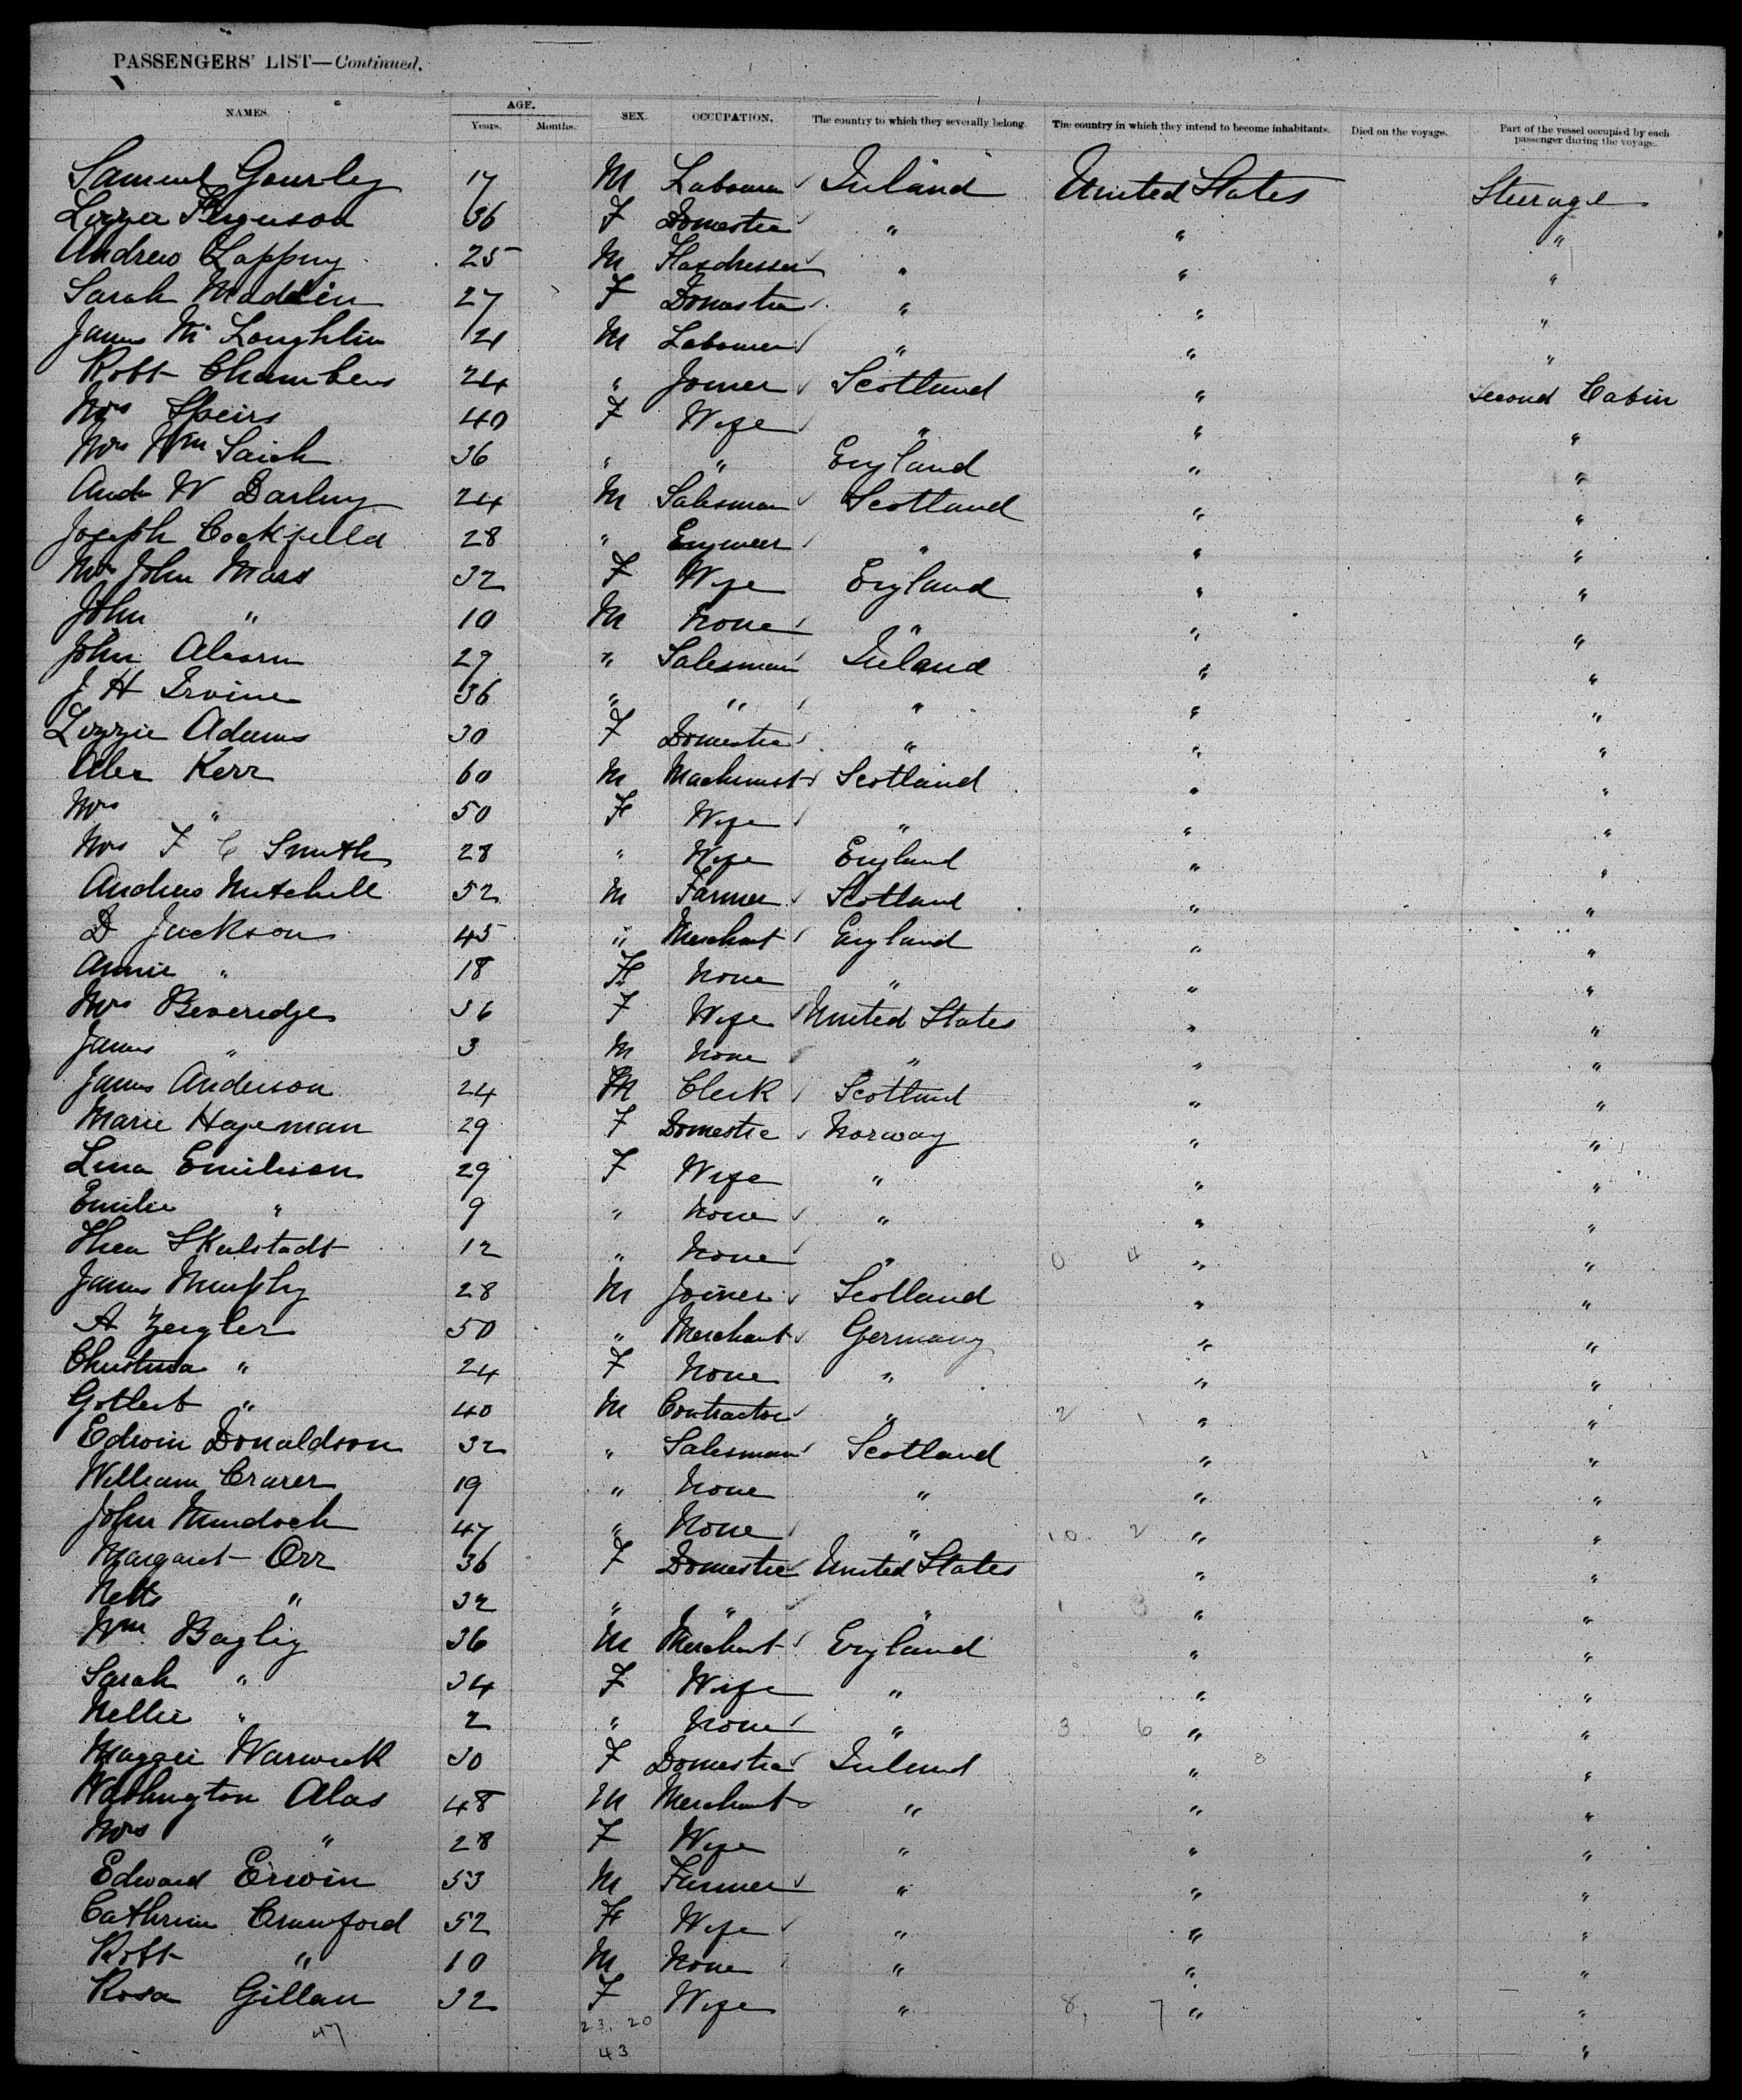 PASSENGERS' LIST—Continued.
NAMES. AGE. Years. Months. SEX. OCCUPATION. The country to which they severally belong. The country in which they intend to become inhabitants. Died on the voyage. Part of the vessel occupied by each passenger during the voyage.
Samuel Gourley 17 M Labourer Ireland United States Steerage
Lizzie Ferguson 36 F Domestic " " "
Andrew Lappny 25 M Flaxdresser " " "
Sarah Madden 27 F Domestic " " "
James Mc Loughlin 21 M Labourer " " "
Robt Chambers 24 " Joiner Scotland " Second Cabin
Mrs Speirs 40 F Wife " " "
Mrs Wm Saich 36 " " England " "
Andw W Darling 24 M Salesman Scotland " "
Joseph Cockfield 28 " Engineer " " "
Mrs John Mass 32 F Wife England " "
John " 10 M None " " "
John Ahearn 29 " Salesman Ireland " "
J H Irvine 36 " " " " "
Lizzie Adams 30 F Domestic " " "
Alex Kerr 60 M Machinist Scotland " "
Mrs " 50 F Wife " " "
Mrs F C Smith 28 " Wife England " "
Andrew Mitchell 52 M Farmer Scotland " "
D Jackson 45 " Merchant England " "
Annie " 18 F None " " "
Mrs Beveridge 36 F Wife United States " "
James " 3 M None " " "
James Anderson 24 M Clerk Scotland " "
Marie Hageman 29 F Domestic Norway " "
Lina Emilisen 29 F Wife " " "
Emilie " 9 " None " " "
Thea Skulstadt 12 " None " 0 4 " "
James Murphy 28 M Joiner Scotland " "
A Zeigler 50 " Merchant Germany " "
Christina " 24 F None " " "
Gotleib " 40 M Contractor " 2 1 " "
Edwin Donaldson 32 " Salesman Scotland " "
William Crarer 19 " None " " "
John Murdoch 47 " None " 10 2 " "
Margaret Orr 36 F Domestic United States " "
" 32 " " " 1 8 " "
Wm Bagley 36 M Merchant England " "
Sarah " 34 F Wife " " "
Nellie " 2 " None " 3 6 " "
Maggie Warwick 30 F Domestic Ireland 8 " "
Washington Alas 48 M Merchant " " "
Mrs " 28 F Wife " " "
Edward Erwin 53 M Farmer " " "
Cathrine Crawford 52 F Wife " " "
Robt " 10 M None " " "
Rosa Gillan 32 F Wife " 8 7 " "
47 23. 20 "
43